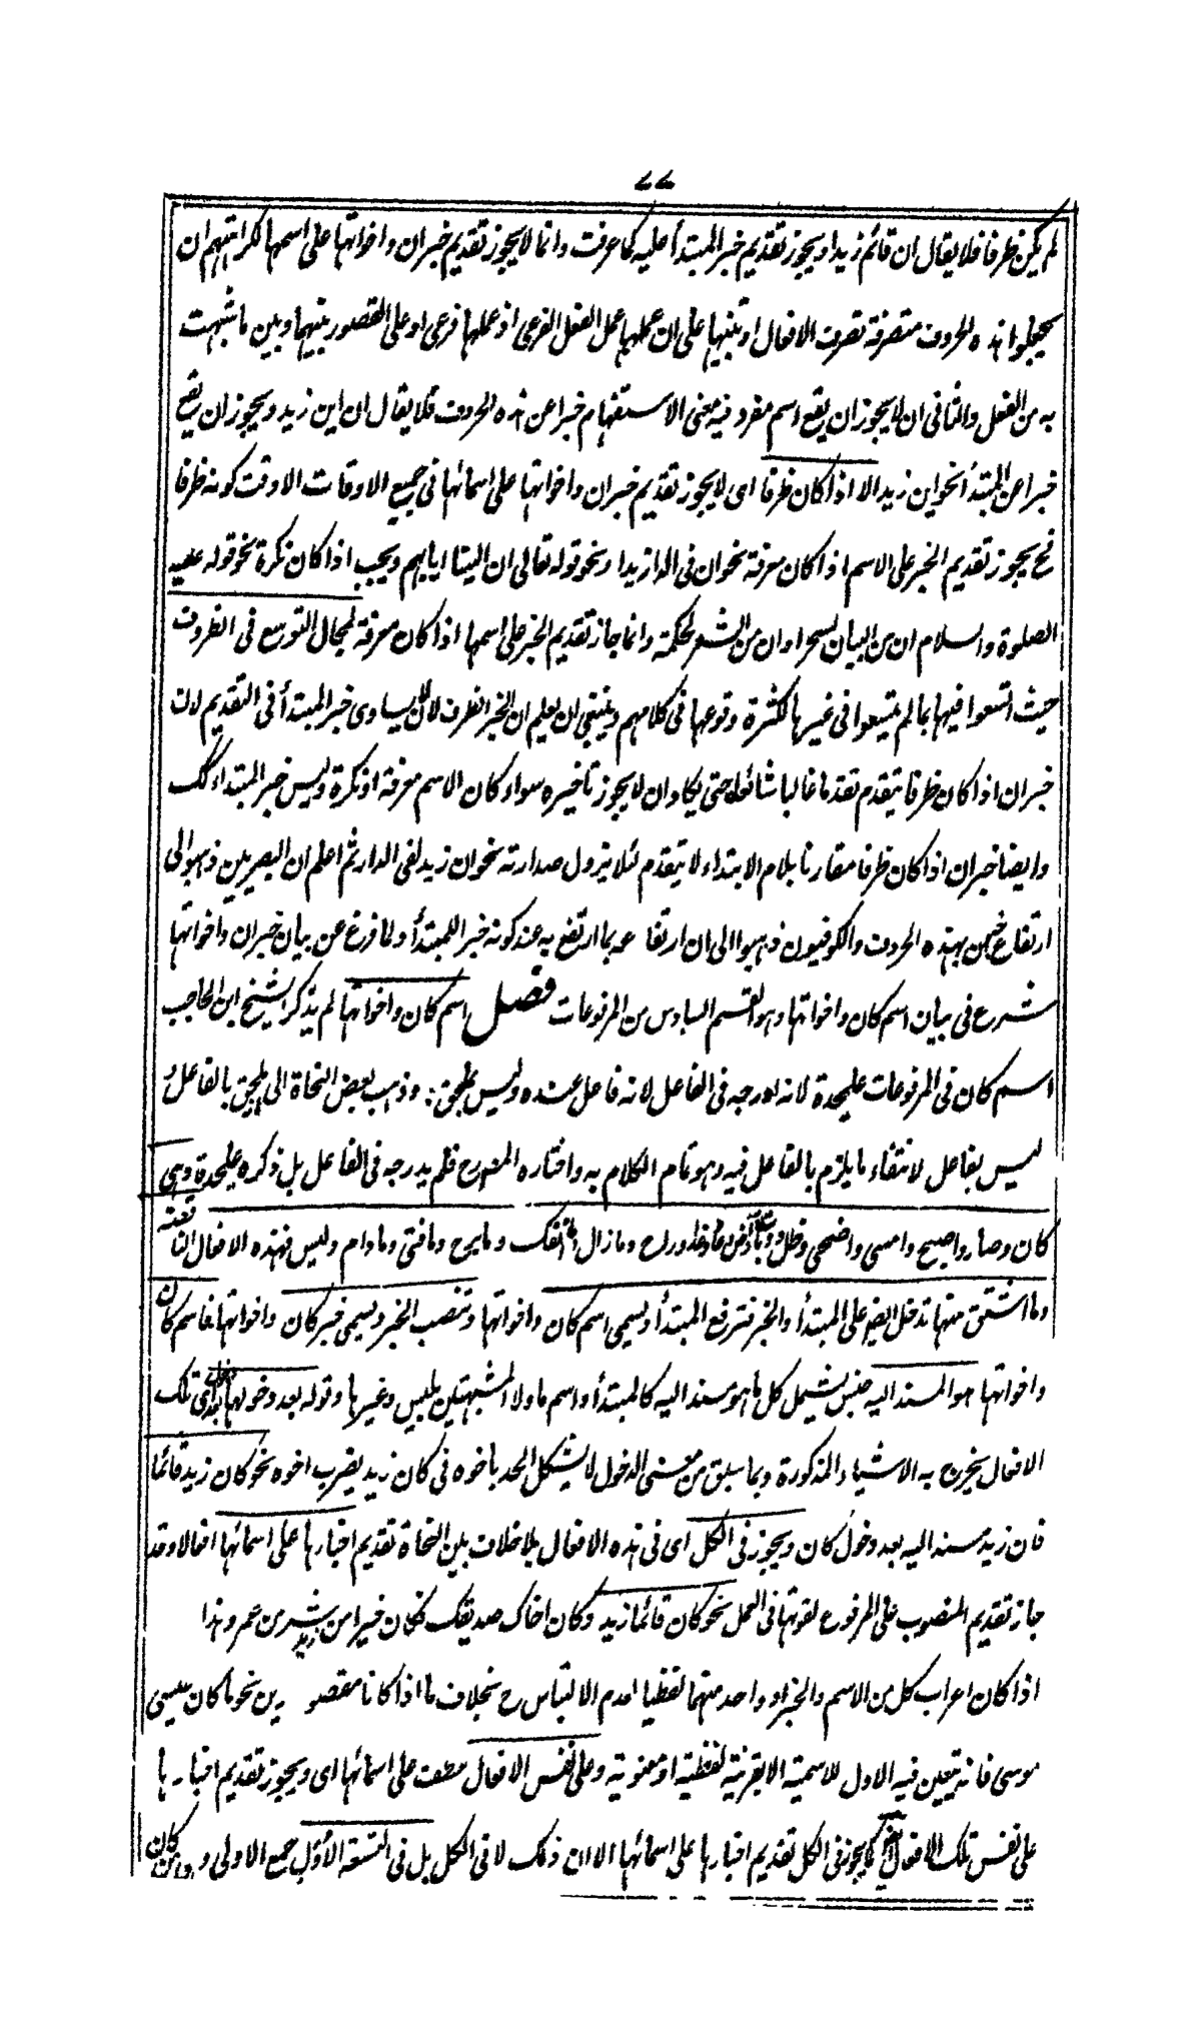 ٧٧
لم يكن ظرفا فلا يقال ان قائم زيدا ويجوز تقديم خبر المبتدأ عليه كما عرفت وانما لا يجوز تقديم خبر ان واخواتها على اسمها لكراهتهم ان
يجعلوا هذه الحروف متصرفة تصرف الافعال او تنبيها على ان عملها عمل الفعل الفرعى اذ عملها فرعى او على القصور بينها وبين ما شبهت
به من الفعل والثانى ان لا يجوز ان يقع اسم مفرد فيه معنى الاستفهام خبرا عن هذه الحروف فلا يقال ان اين زيد ويجوز ان يقع
خبرا عن المبتدأ نحو اين زيد الا اذا كان ظرفا اى لا يجوز تقديم خبر ان واخواتها على اسمائها فى جميع الاوقات الا وقت كونه ظرفا
فح يجوز تقديم الخبر على الاسم اذا كان معرفة نحو ان فى الدار زيدا ونحو قوله تعالى ان الينا ايابهم ويجب اذا كان نكرة نحو قوله عليه
الصلوة والسلام ان من البيان لسحرا وان من الشعر لحكمة وانما جاز تقديم الخبر على اسمها اذا كان معرفة لمجال التوسع فى الظروف
حيث اتسعوا فيها بما لم يتسعوا فى غيرها لكثرة وقوعها فى كلامهم وينبغى ان يعلم ان الخبر الظرف لان يساوى خبر المبتدأ فى التقديم لان
خبر ان اذا كان ظرفا يتقدم تقدما غالبا شائعا حتى يكاد ان لا يجوز تاخيره سواء كان الاسم معرفة او نكرة وليس خبر المبتداء كك
وايضا خبر ان اذا كان ظرفا مقارنا بلام الابتداء لا يتقدم لئلا يزول صدارته نحو ان زيد لفى الدار ثم اعلم ان البصريين ذهبوا الى
ارتفاع خبرهن بهذه الحروف والكوفيون ذهبوا الى ان ارتفاعه بما ارتفع به عند كونه خبر اللمبتدأ ولما فرغ عن بيان خبر ان واخواتها
شرع فى بيان اسم كان واخواتها وهو القسم السادس من المرفوعات فصل اسم كان واخواتها لم يذكر الشيخ ابن الحاجب
اسم كان فى المرفوعات عليحدة لانه ادرجه فى الفاعل لانه فاعل عنده وليس بملحق به وذهب بعض النحاة الى يلحق بالفاعل و
ليس بفاعل لانتفاء ما يلزم بالفاعل فيه وهو تمام الكلام به واختاره المص رح فلم يدرجه فى الفاعل بل ذكره عليحدة وهى
كان وصار واصبح وامسى واضحى وظل وبات وآض وعاد وغدا وراح وما زال وما انفك وما برح وما فتئ وما دام وليس فهذه الافعال الناقصة
وما اشتق منها تدخل ايضا على المبتدأ والخبر فترفع المبتدأ ويسمى اسم كان واخواتها وتنصب الخبر ويسمى خبر كان واخواتها فاسم كان
واخواتها هو المسند اليه جنس يشمل كل ما هو مسند اليه كالمبتدأ واسم ما ولا المشبهتين بليس وغيرها وقوله بعد دخولها اى تلك
الافعال يخرج به الاشياء المذكورة وبما سبق من معنى الدخول لا يشكل الحد باخوه فى كان زيد يضرب اخوه نحو كان زيد قائما
فان زيد مسند اليه بعد دخول كان ويجوز فى الكل اى فى هذه الافعال بلا خلاف بين النحاة تقديم اخبارها على اسمائها افعالا وقد
جاز تقديم المنصوب على المرفوع لقوتها فى العمل نحو كان قائما زيد وكان اخاك صديقك فكان خيرا من بشر من عمرو هذا
اذا كان اعراب كل من الاسم والخبر او واحد منهما لفظيا لعدم الالتباس ح بخلاف ما اذا كانا مقصورين نحو ما كان عيسى
موسى فانه يتعين فيه الاول للاسمية الا بقرينة لفظية او معنوية وعلى نفس الافعال عطف على اسمائها اى ويجوز تقديم اخبارها
على نفس تلك الافعال كما يجوز فى الكل تقديم اخبارها على اسمائها الا ان ذلك لا فى الكل بل فى التسعة الأوّل جمع الاولى و